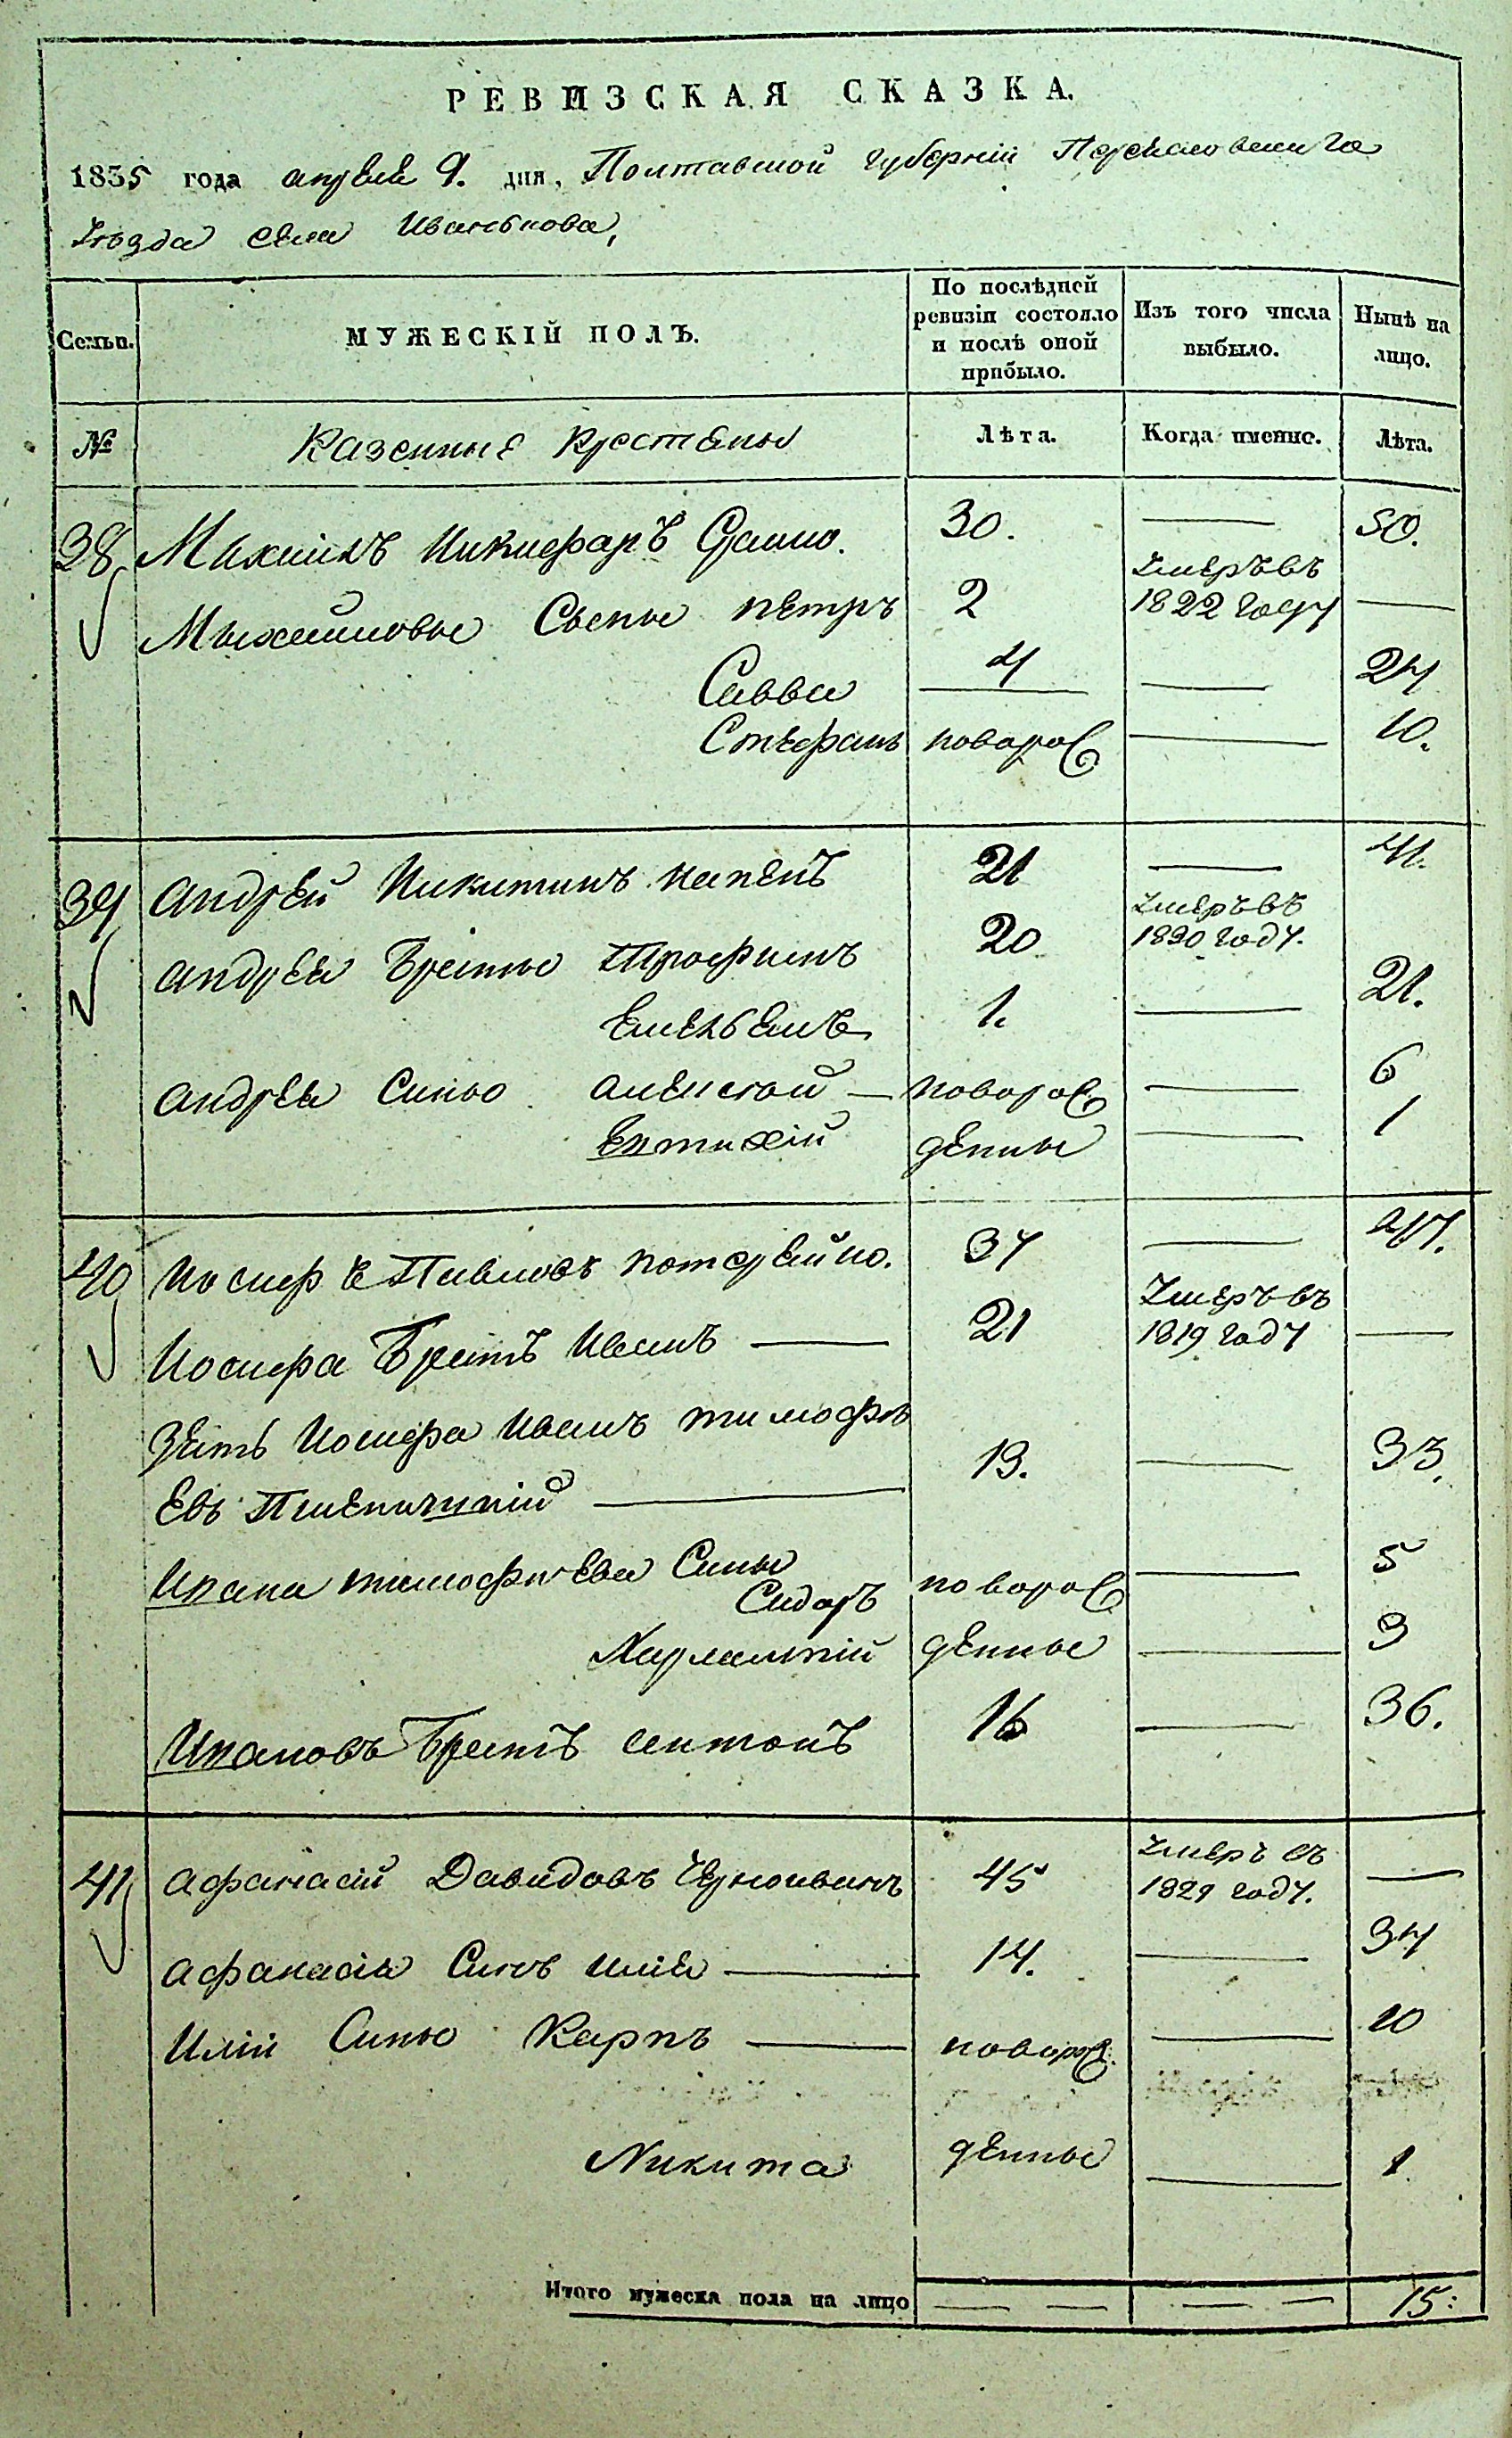 РЕВИЗСКАЯ СКАЗКА.
1835 года апреля 9. дня, Полтавской губерніи Переяславскаго
уезда села Иванькова,
Семьи.
МУЖЕСКІЙ ПОЛЪ.
По послѣдней ревизіи состояло и послѣ оной прибыло.
Изъ того числа выбыло.
Нынѣ на лицо.
№
Казенные крестяны
Лѣта.
Когда именно.
Лѣта.
38 Михаилъ Никифоръ 30. — 50.
Михайловы Сыны Петръ 2 умеръ въ 1822 году —
Савва 4 — 24
Стефанъ новорож — 10.
39 Андрей Никитинъ 21 — 41.
Андрея Братья Трофимъ 20 умеръ въ 1830 году.
Емельянъ 1. — 21.
Андрея Сыны Алексей — новорож — 6
Евтихій денные — 1
40 Иосифъ Павловъ 37 — 47.
Иосифа Братъ Иванъ — 21 умеръ въ 1819 году —
Зять Иосифа Иванъ Тимофѣ
евъ — 13. — 33.
Ивана Тимофѣева Сыны
Сидоръ новорож — 5
Харлампій денные — 3
Ивановъ Братъ Антонъ 16 — 36.
41 Афанасій Давидовъ Черноиванъ 45 умеръ въ 1829 году. —
Афанасія Сынъ Илія — 14. — 34
Иліи Сыны Карпъ — новорож. — 10
Никита денные — 1
Итого мужеска пола на лицо — — — — 15: